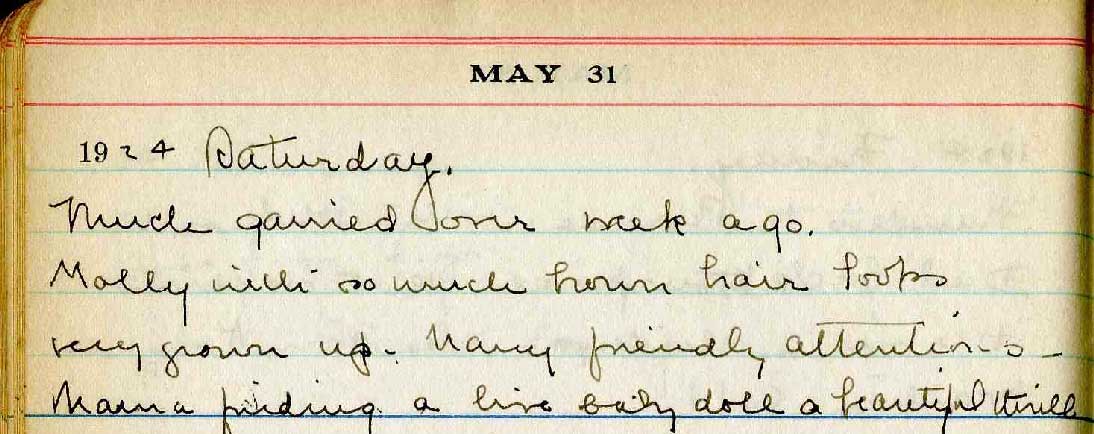 MAY 31
1924 Saturday.
Much gained over week ago.
Molly with so much brown hair looks
very grown up. Many friendly attentions -
Mama finding a live baby doll a beautiful thrill